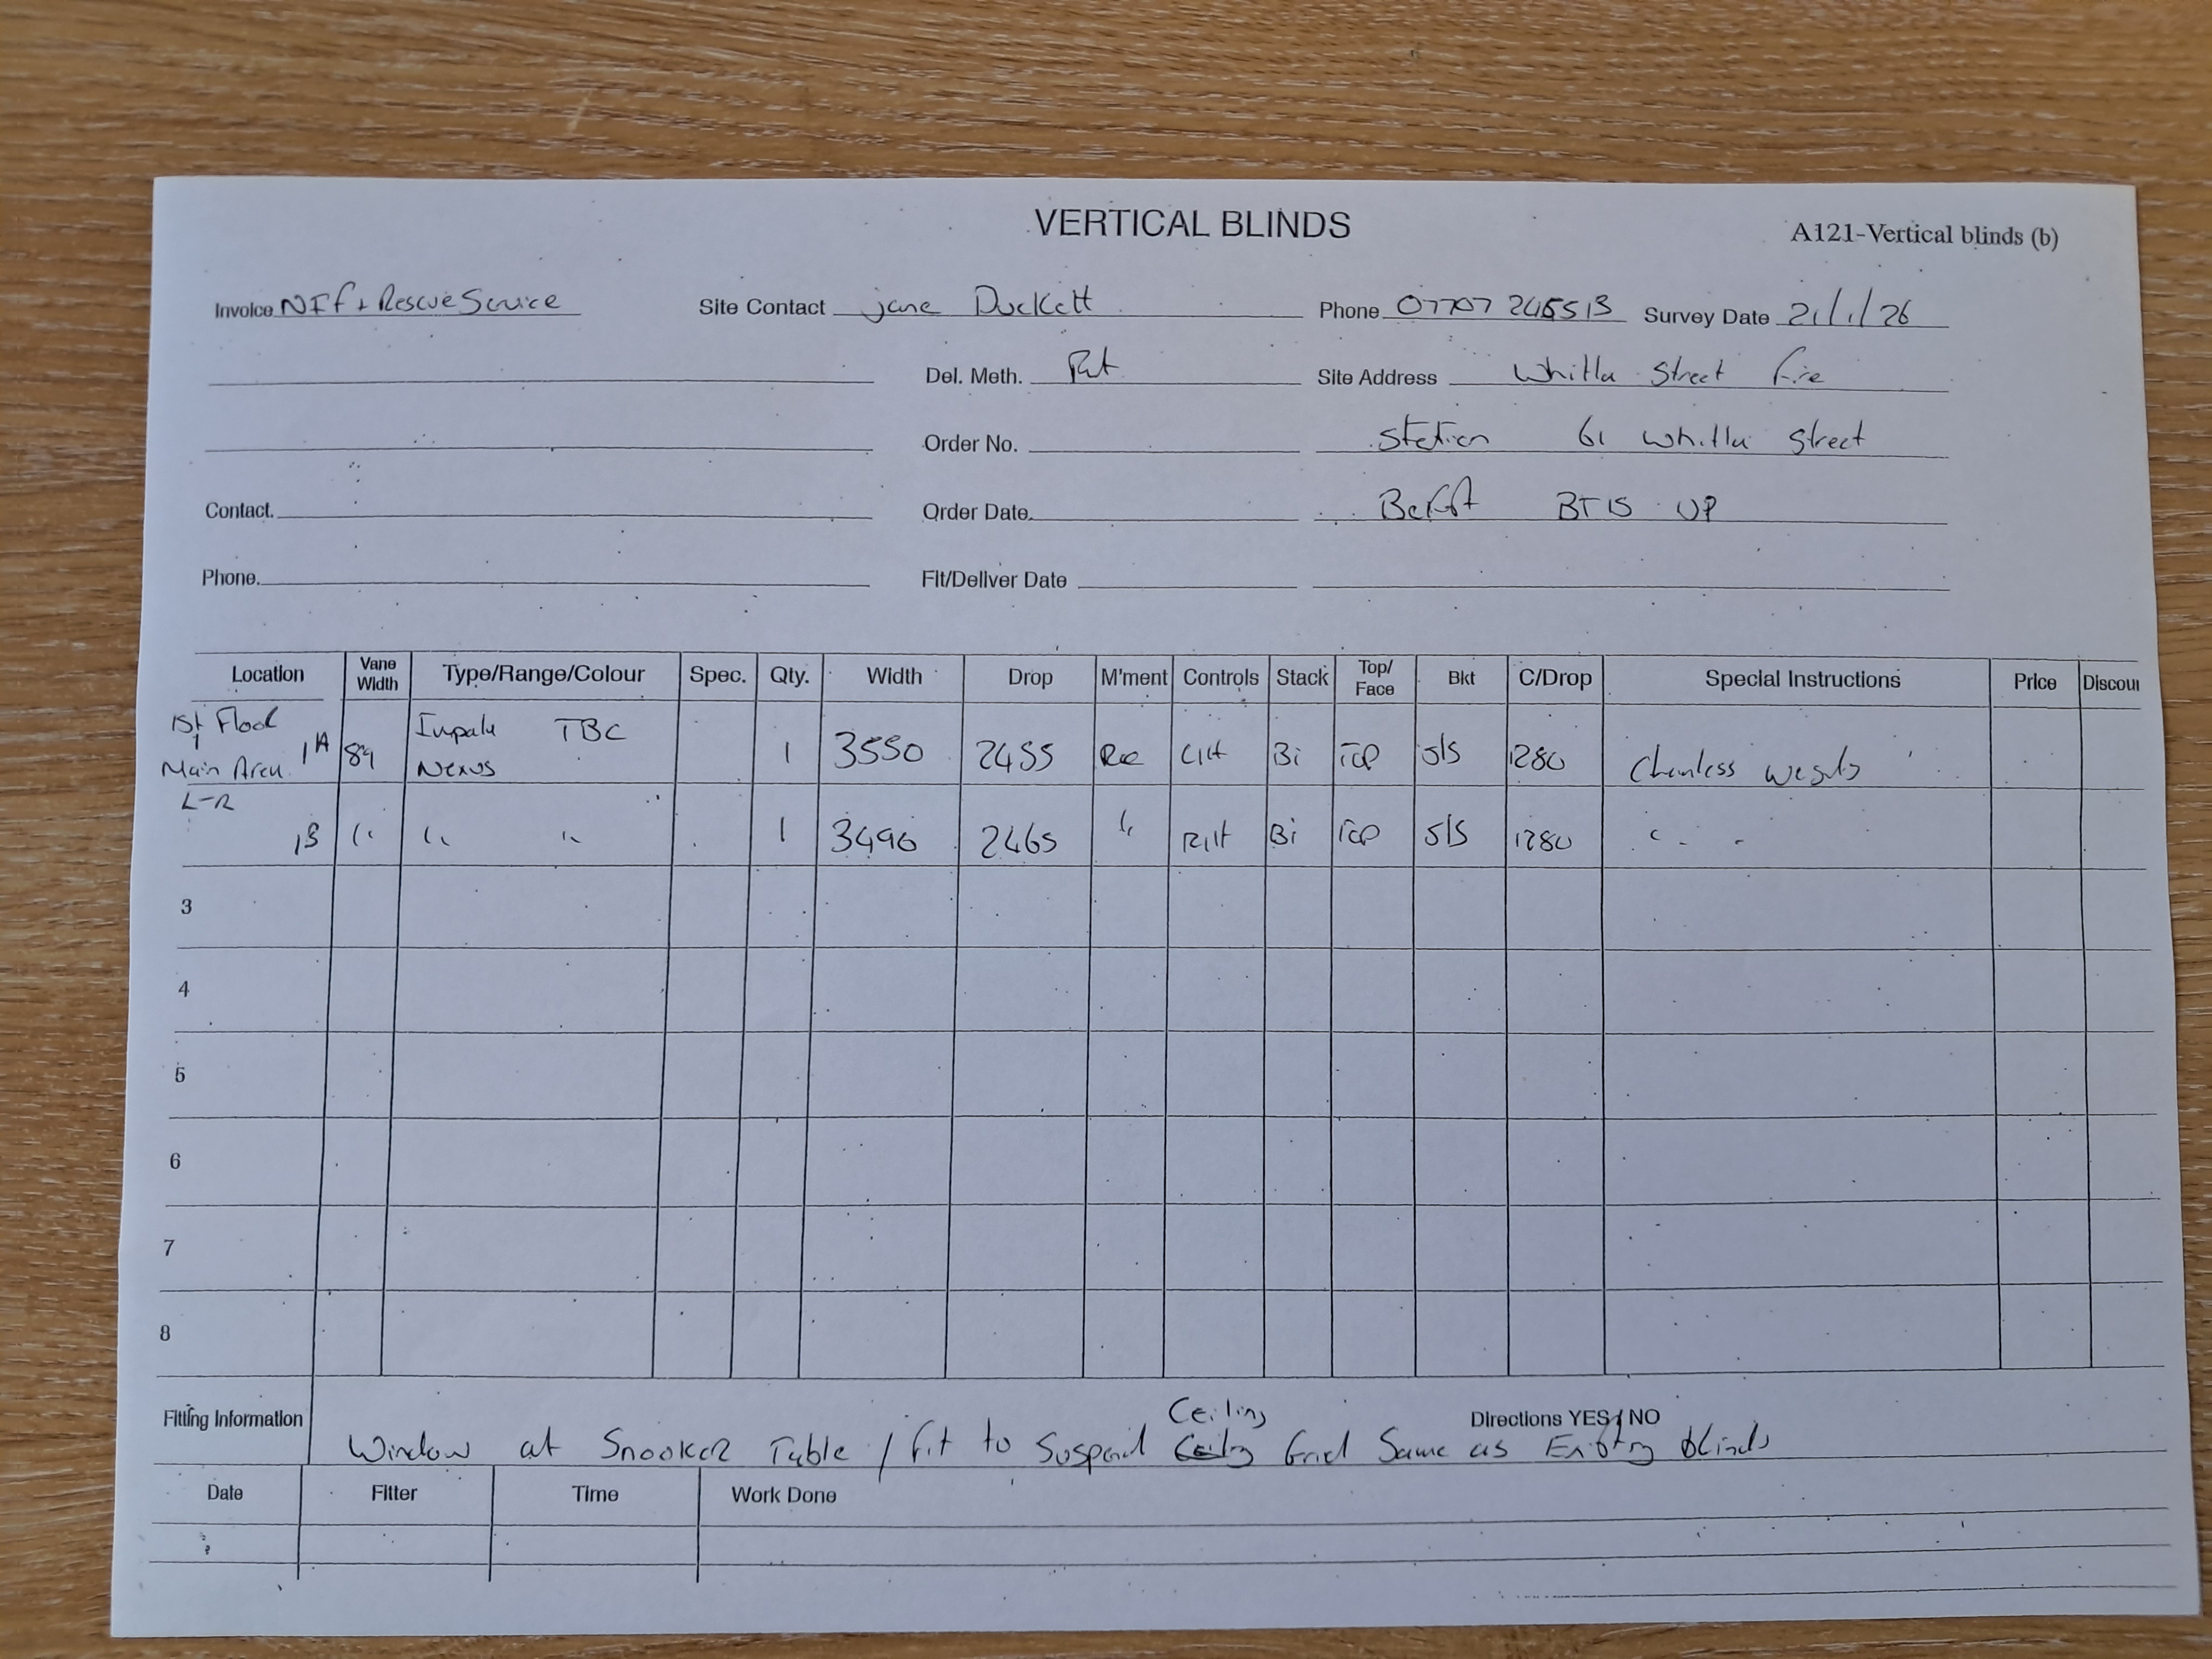 VERTICAL BLINDS
A121-Vertical blinds (b)
Invoice NIF + Rescue Service Site Contact jane Duckett Phone 07707 246513 Survey Date 21/1/26
Del. Meth. Site Address Whitla Street Fire
Order No. Station 61 Whitla Street
Contact. Order Date. BT15
Phone. Fit/Deliver Date
Location Vane Width Type/Range/Colour Spec. Qty. Width Drop M'ment Controls Stack Top/Face Bkt C/Drop Special Instructions Price Discou
1st Floor
Main Area 1A 89 Impala TBC Nexus 1 3550 2455 Rec Bi Top S/S 1280 Chainless weights
L-R
1B " " " 1 3490 2465 " Bi Top S/S 1280 " "
3
4
5
6
7
8
Fitting Information Directions YES / NO
Window at Snooker Table / Fit to Suspend Ceiling Grid Same as Existing blinds
Date Fitter Time Work Done